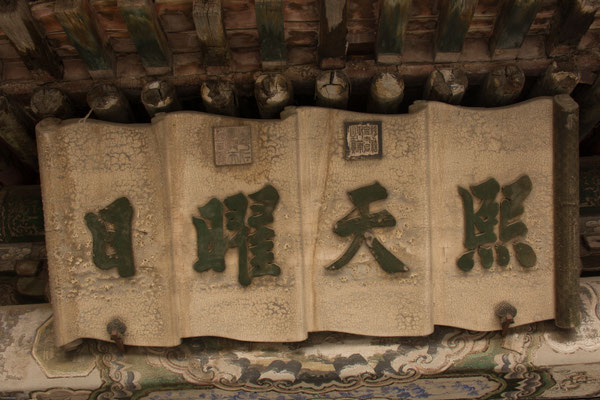 熙天曜日